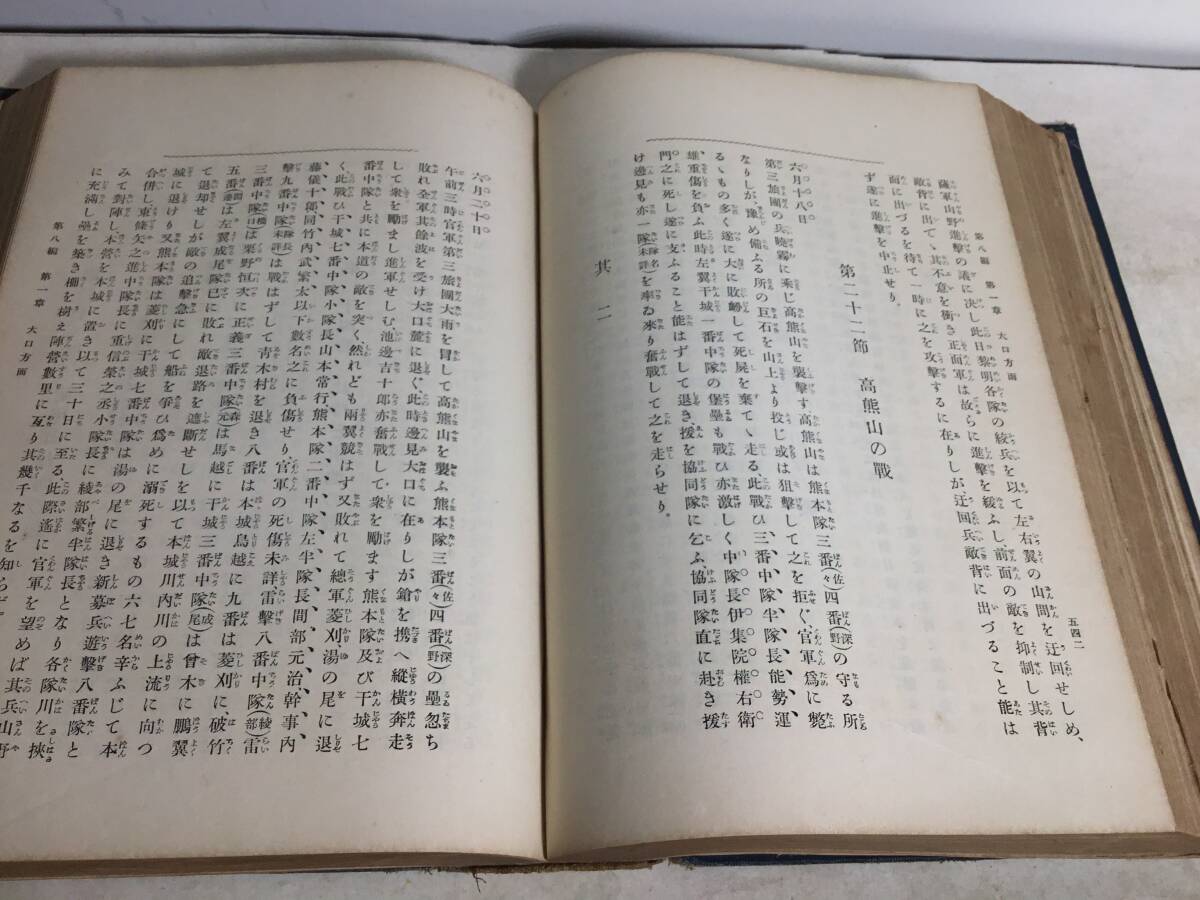 第八編 第一章 大口方面 五四二
薩軍山野進擊の議に決し此日黎明各隊の絞兵を以て左右翼の山間を迂回せしめ、
敵背に出でゝ其不意を衝き正面軍は故らに進擊を緩ふし前面の敵を抑制し其背
面に出づるを待て一時に之を攻擊するに在りしが迂回兵敵背に出づること能は
ず遂に進擊を中止せり。
第二十二節 高熊山の戰
六月十八日
第三旅團の兵曉霧に乘じ高熊山を襲擊す高熊山は熊本隊三番(佐々)四番(深野)の守る所
なりしが、豫め備ふる所の巨石を山上より投じ或は狙擊して之を拒ぐ、官軍爲に斃
るゝもの多く遂に大に敗衂して死屍を棄てゝ走る此戰ひ三番中隊半隊長能勢運
雄重傷を負ふ此時左翼干城一番中隊の堡壘も戰ひ亦激しく中隊長伊集院權右衛
門之に死し遂に支ふること能はずして退き援を協同隊に乞ふ、協同隊直に赴き援
け邊見も亦一隊(隊名未詳)を率ゐ來り奮戰して之を走らせり。
其二
六月二十日
午前三時官軍第三旅團大雨を冒して高熊山を襲ふ熊本隊三番(佐々)四番(深野)の壘忽ち
敗れ全軍其餘波を受け大口麓に退く、此時邊見大口に在りしが鎗を携へ縱橫奔走
して衆を勵まし進軍せしむ池邊吉十郎亦奮戰して衆を勵ます熊本隊及び干城七
番中隊と共に本道の敵を突く、然れども兩翼競はず又敗れて總軍菱刈、湯の尾に退
く、此戰ひ干城七番中隊小隊長山本常行、熊本隊二番中隊左半隊長間部元治幹事內
藤儀十郎同竹內武繁太以下數名之に負傷せり官軍の死傷未詳雷擊八番中隊(綾部)雷
擊九番中隊(隊長未詳)は戰はずして靑木村を退き八番は本城鳥越に九番は菱刈に、破竹
三番中隊(橋口)は栗野恒次に正義三番中隊(森元)は馬越に干城三番中隊(成尾)は曾木に鵬翼
五番(間邊)は左翼成尾隊已に敗れ敵退路を遮斷せしを以て本城川內川の上流に向つ
て退却せしが敵の追擊急にして船を爭ひ爲めに溺死するもの六七名辛ふじて本
城に退けり又熊本隊は菱刈に干城七番中隊は湯の尾に退き新募兵遊擊八番隊と
合併し東條矢之進中隊長に重信榮之丞小隊長に綾部繁半隊長となり各隊川を挾
みて對陣し、本營を本城に置き以て三十日に至る、此際遙に官軍を望めば其兵山野
に充滿し壘を築き柵を樹え陣營數里に亙り其幾千なるを知らず
第八編 第一章 大口方面